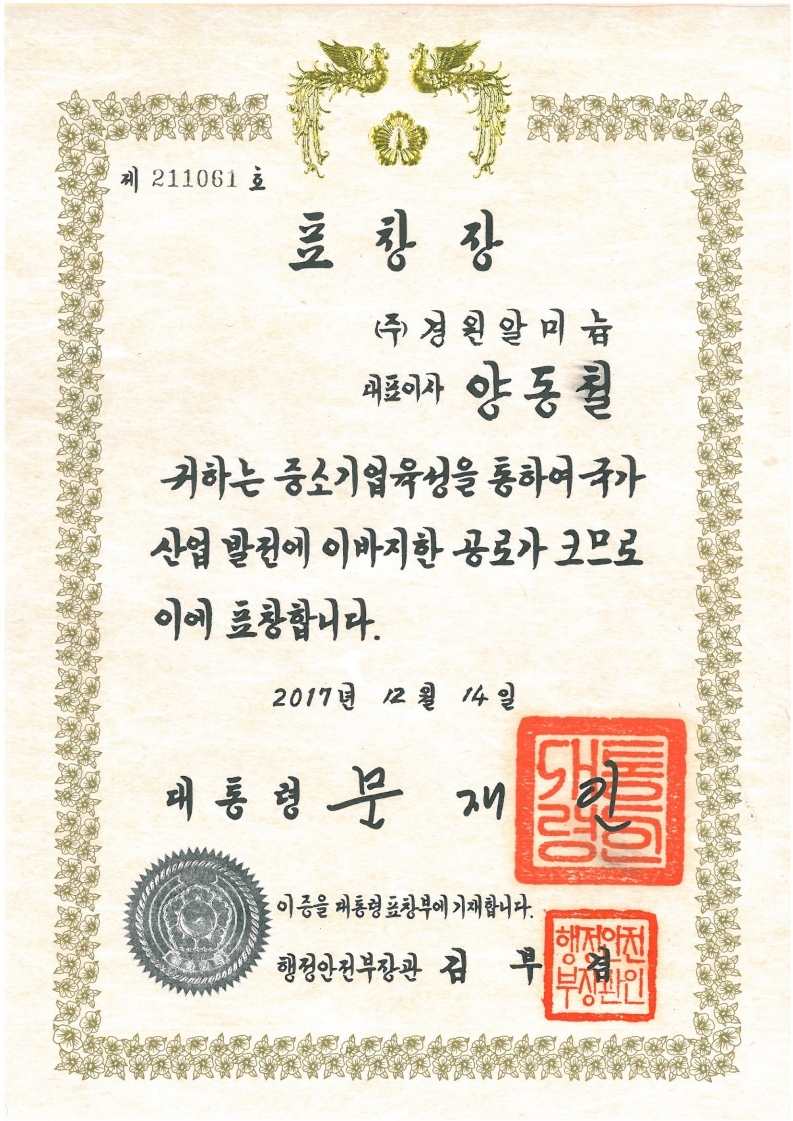 제 211061 호
표창장
(주)경원알미늄
대표이사 양동철
귀하는 중소기업육성을 통하여 국가
산업 발전에 이바지한 공로가 크므로
이에 표창합니다.
2017년 12월 14일
대통령 문재인
대통령인
이 증을 대통령표창부에 기재합니다.
행정안전부장관 김부겸
행정안전
부장관인